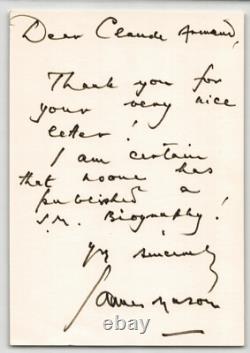 Dear Claude Armand,
Thank you for
your very nice
letter!
I am certain
that noone has
published a
J.M. Biography!
Yrs sincerely
James Mason
ebay.com